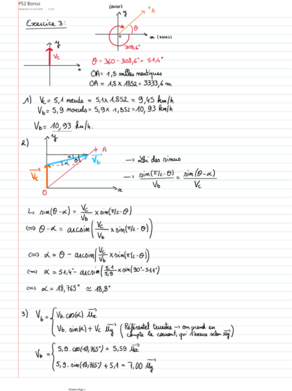 PS2 Bonus
Exercice 3:
y (nord)
A
θ
x (est)
308,6°
V_c
y
x
θ = 360 - 308,6° = 51,4°
OA = 1,8 milles nautiques
OA = 1,8 x 1852 = 3333,6 m
1) V_c = 5,1 nœuds = 5,1 x 1,852 = 9,45 km/h
V_b = 5,9 nœuds = 5,9 x 1,852 = 10,93 km/h
V_b = 10,93 km/h.
2)
y
A
V_b
V_c
O
x
→ Loi des sinus
→ sin(π/2-θ)/V_b = sin(θ-α)/V_c
↳ sin(θ-α) = V_c/V_b x sin(π/2-θ)
⇔ θ-α = arcsin(V_c/V_b x sin(π/2-θ))
⇔ α = θ - arcsin(V_c/V_b x sin(π/2-θ))
⇔ α = 51,4° - arcsin(5,1/5,9 x sin(90°-51,4°))
⇔ α = 18,765° ≅ 18,8°
3) V_b = { V_b cos(α) u_x
V_b . sin(α) + V_c u_y (Référentiel terrestre → on prend en compte le courant, qui s'exerce selon u_y)
V_b = { 5,9 . cos(18,765°) = 5,59 u_x
5,9 . sin(18,765°) + 5,1 = 7,00 u_y